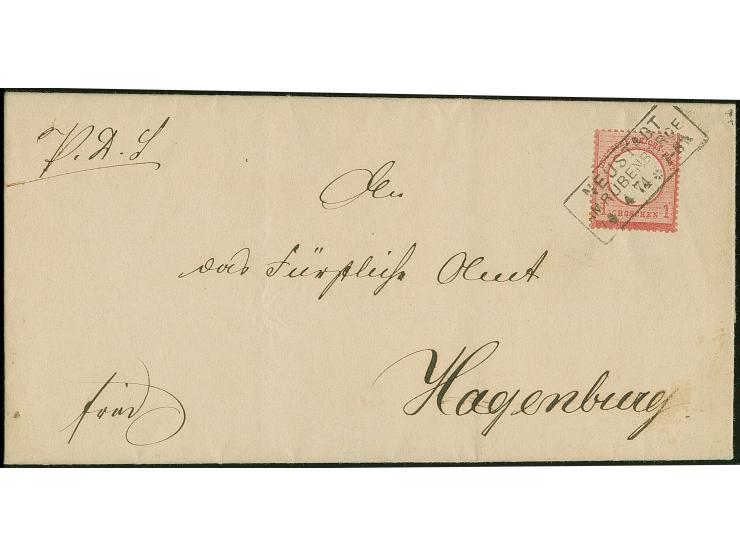 P. D. S
An
das Fürstliche Amt
Hagenburg
frei
NEUSTADT
AM RÜBENBERGE
4 74
GROSCHEN 1